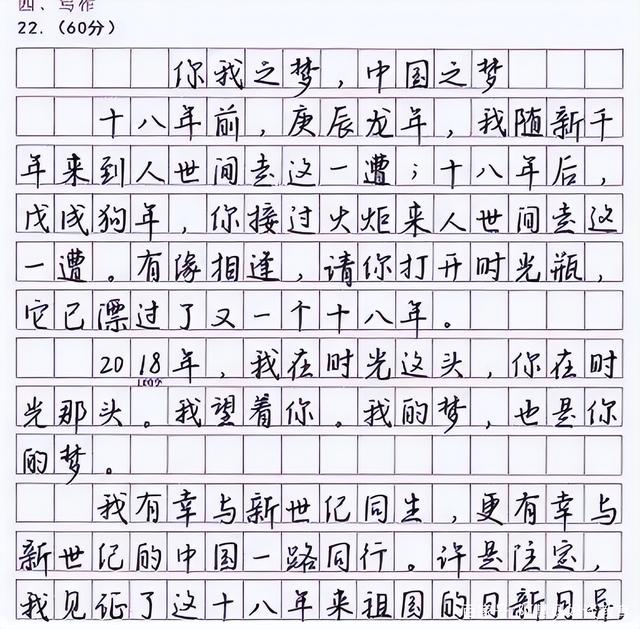 四、写作
22.（60分）
你我之梦，中国之梦
十八年前，庚辰龙年，我随新千
年来到人世间走这一遭；十八年后，
戊戌狗年，你接过火炬来人世间走这
一遭。有缘相逢，请你打开时光瓶，
它已漂过了又一个十八年。
2018年，我在时光这头，你在时
100分
光那头。我望着你。我的梦，也是你
的梦。
我有幸与新世纪同生，更有幸与
新世纪的中国一路同行。许是注定，
我见证了这十八年来祖国的日新月异